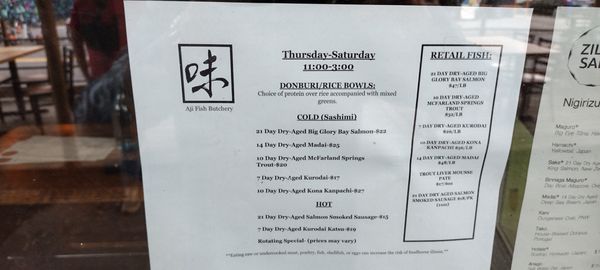 味
Aji Fish Butchery
Thursday-Saturday
11:00-3:00
DONBURI/RICE BOWLS:
Choice of protein over rice accompanied with mixed
greens.
COLD (Sashimi)
21 Day Dry-Aged Big Glory Bay Salmon-$22
14 Day Dry-Aged Madai-$25
10 Day Dry-Aged McFarland Springs
Trout-$20
7 Day Dry-Aged Kurodai-$17
10 Day Dry-Aged Kona Kanpachi-$27
HOT
21 Day Dry-Aged Salmon Smoked Sausage-$15
7 Day Dry-Aged Kurodai Katsu-$19
Rotating Special- (prices may vary)
*Eating raw or undercooked meat, poultry, fish, shellfish, or eggs can increase the risk of foodborne illness.**
RETAIL FISH:
21 DAY DRY-AGED BIG
GLORY BAY SALMON
$47/LB
10 DAY DRY-AGED
MCFARLAND SPRINGS
TROUT
$32/LB
7 DAY DRY-AGED KURODAI
10 DAY DRY-AGED KONA
KANPACHI
14 DAY DRY-AGED MADAI
TROUT LIVER MOUSSE
PATE
21 DAY DRY-AGED SALMON
SMOKED SAUSAGE
Nigirizu
Maguro*
Hamachi*
Yellowtail, Japan
Sake*
Madai*
Kani
Tako
Hotate*